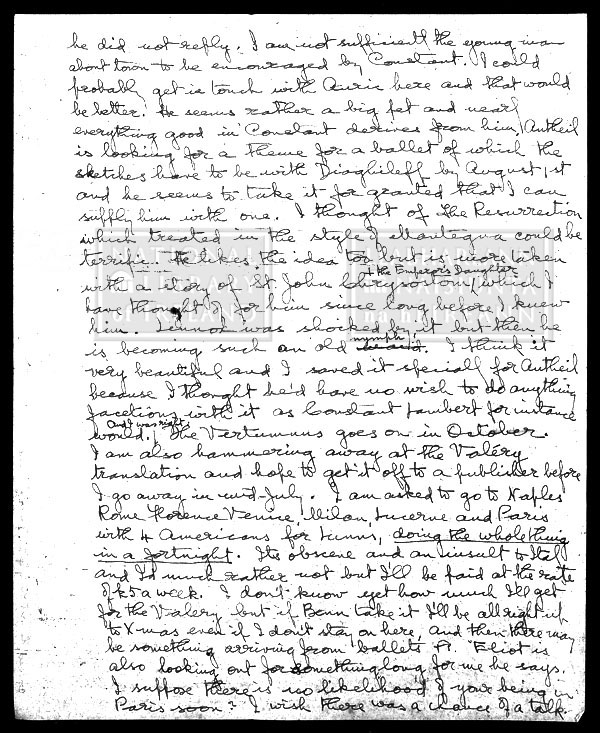 he did not reply. I am not sufficiently the young man
about town to be encouraged by Constant. I could
probably get in touch with Auric here and that would
be better. He seems rather a big pet and nearly
everything good in Constant derives from him. Antheil
is looking for a theme for a ballet of which the
sketches have to be with Diaghileff by August, 1st
and he seems to take it for granted that I can
supply him with one. I thought of the Resurrection
which treated in the style of Mantegna could be
terrific. He likes the idea too but is more taken
with a story of St. John Chrysostom & the Emperor's Daughter (which I
have thought of for him since long before I knew
him. Lennox was shocked by it but then he
is becoming such an old nymph. I think it
very beautiful and I saved it specially for Antheil
because I thought he'd have no wish to do anything
facetious with it as Constant Lambert for instance
would. And I was right. The Vertumnus goes on in October.
I am also hammering away at the Valéry
translation and hope to get it off to a publisher before
I go away in mid-July. I am asked to go to Naples
Rome Florence Venice, Milan, Lucerne and Paris
with 4 Americans for Lunns, doing the whole thing
in a fortnight. Its obscene and an insult to Italy
and I'd much rather not but I'll be paid at the rate
of £5 a week. I don't know yet how much I'll get
for the Valéry but if Benn take it I'll be all right up
to Xmas even if I don't stay on here, and then there may
be something arriving from ballets &c. Eliot is
also looking out for something long for me he says.
I suppose there is no likelihood of your being in
Paris soon? I wish there was a chance of a talk.